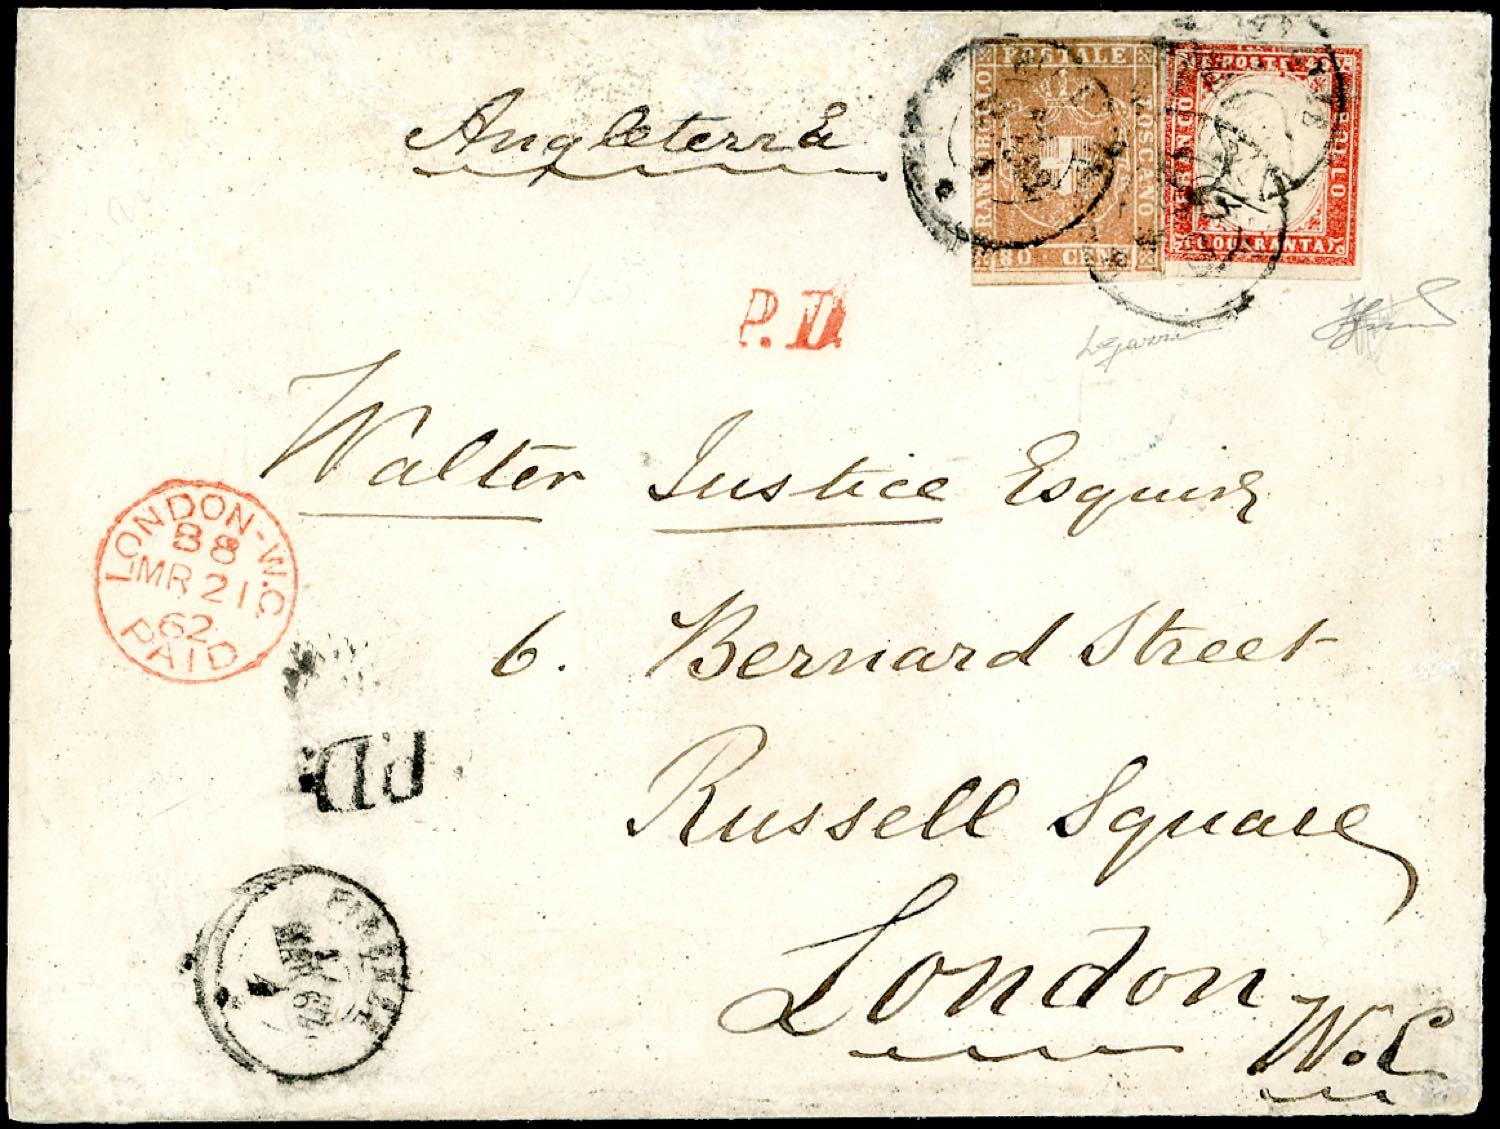 Angleterre
FRANCOBOLLO
POSTALE
TOSCANO
80 CENT
C. POSTE 40
FRANCO
BOLLO
QUARANTA
P.D.
Walter Justice Esquire
LONDON-W.C.
B8
MR 21
62
PAID
6. Bernard Street
P.D.
Russell Square
FIRENZE
17
MAR
62
London
W.C